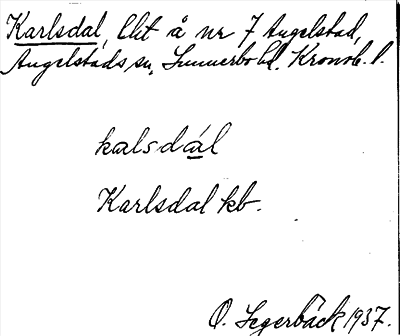 Karlsdal, lht å nr 7 Angelstad,
Angelstads sn, Sunnerbo hd, Kronob. l.
kalsdál
Karlsdal kb.
O. Segerbäck 1937.